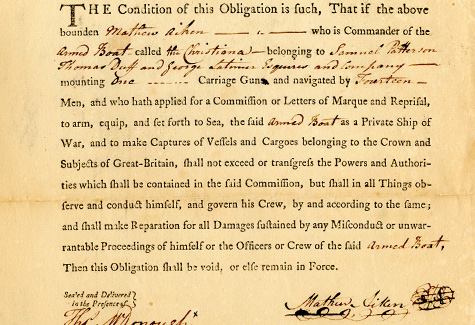 THE Condition of this Obligation is such, That if the above
bounden Mathew Aiken who is Commander of the
Armed Boat called the Christiana belonging to Samuel Patterson
Thomas Duff and George Latimer Esquires and Company
mounting One Carriage Guns and navigated by Fourteen
Men, and who hath applied for a Commission or Letters of Marque and Reprisal,
to arm, equip, and set forth to Sea, the said Armed Boat as a Private Ship of
War, and to make Captures of Vessels and Cargoes belonging to the Crown and
Subjects of Great-Britain, shall not exceed or transgress the Powers and Authori-
ties which shall be contained in the said Commission, but shall in all Things ob-
serve and conduct himself, and govern his Crew, by and according to the same;
and shall make Reparation for all Damages sustained by any Misconduct or unwar-
rantable Proceedings of himself or the Officers or Crew of the said Armed Boat,
Then this Obligation shall be void, or else remain in Force.
Sealed and Delivered
in the Presence of
Mathew Aiken
Tho. McDonough